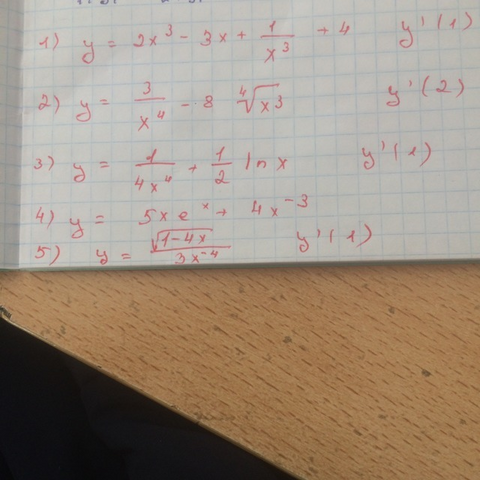 1) y = 2x³ - 3x + 1/x³ + 4 y'(1)
2) y = 3/x⁴ - 8 ∜x³ y'(2)
3) y = 1/4x⁴ + 1/2 ln x y'(1)
4) y = 5x eˣ + 4x⁻³
5) y = √(1-4x)/3x⁻⁴ y'(1)